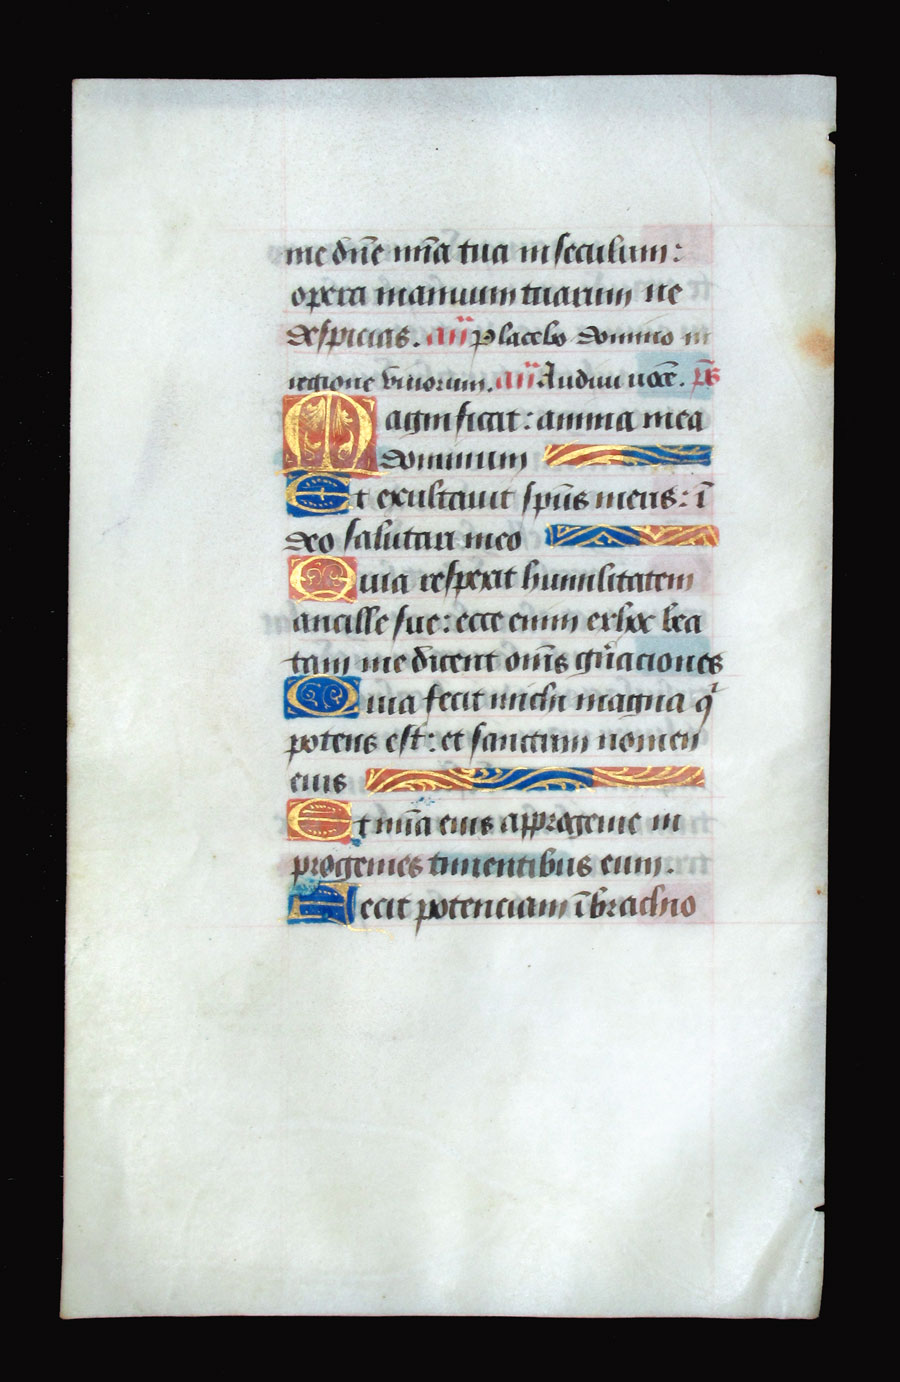 me dn̄e mīa tua in seculum:
opera manuum tuarum ne
despicias. an̄ Placebo domino in
regione viuorum. an̄ Audiui uocē. ps̄
Magnificat: anima mea
dominum
Et exultauit sp̄us meus: ī
deo salutari meo
Quia respexit humilitatem
ancille sue: ecce enim ex hoc bea
tam me dicent om̄s gn̄aciones
Quia fecit michi magna qͥ
potens est: et sanctum nomen
eius
Et mīa eius a progenie in
progenies timentibus eum.
Fecit potenciam ī brachio